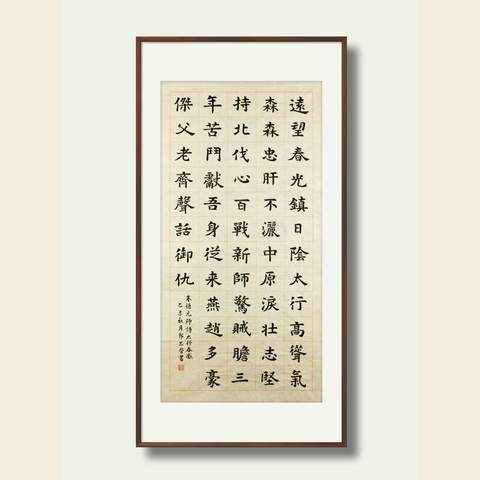 遠望春光鎮日陰太行高聳氣
森森忠肝不灑中原淚壯志堅
持北伐心百戰新師驚賊膽三
年苦鬥獻吾身從來燕趙多豪
傑父老齊聲話御仇
朱德元帥詩太行春感
秋月書